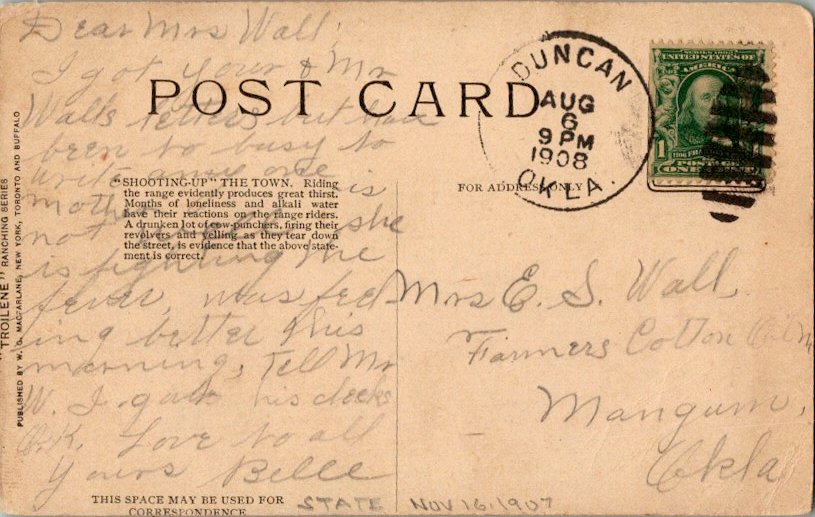 Dear Mrs Wall,
I got your & Mr
Walls letters but have
been to busy to
write any one is
mother
not she
is fighting the
fever, was feel
ing better this
morning, Tell Mr
W. I gave his checks
O.K. Love to all
Yours Belle
POST CARD
"SHOOTING-UP" THE TOWN. Riding
the range evidently produces great thirst.
Months of loneliness and alkali water
have their reactions on the range riders.
A drunken lot of cow-punchers, firing their
revolvers and yelling as they tear down
the street, is evidence that the above state-
ment is correct.
"TROILENE" RANCHING SERIES
PUBLISHED BY W. G. MACFARLANE, NEW YORK, TORONTO AND BUFFALO
THIS SPACE MAY BE USED FOR
CORRESPONDENCE
STATE NOV 16, 1907
DUNCAN
AUG
6
9 PM
1908
OKLA.
SERIES 1902
UNITED STATES OF
AMERICA
1
POSTAGE
ONE
FOR ADDRESS ONLY
Mrs E. S. Wall,
Farmers Cotton
Mangum,
Okla